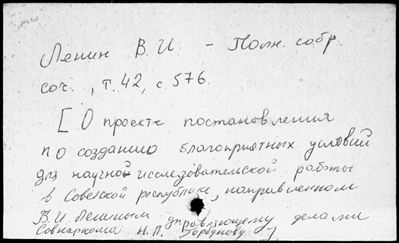 Ленин В. И. - Полн. собр.
соч., т. 42, с. 576.
[О проекте постановления
по созданию благоприятных условий
для научной исследовательской работы
в Советской республике, направленном
В. И. Лениным управляющему делами
Совнаркома Н. П. Горбунову]